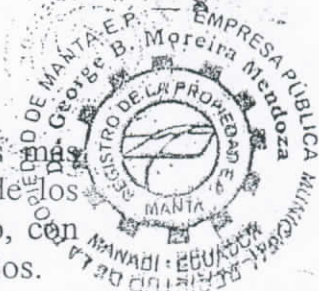 EMPRESA PÚBLICA MUNICIPAL
DE LA
DE MANTA-E.P.
George B. Moreira Mendoza
REGISTRO DE LA PROPIEDAD E.P.
MANTA
MANABI - ECUADOR
más
de los
o, con
os.